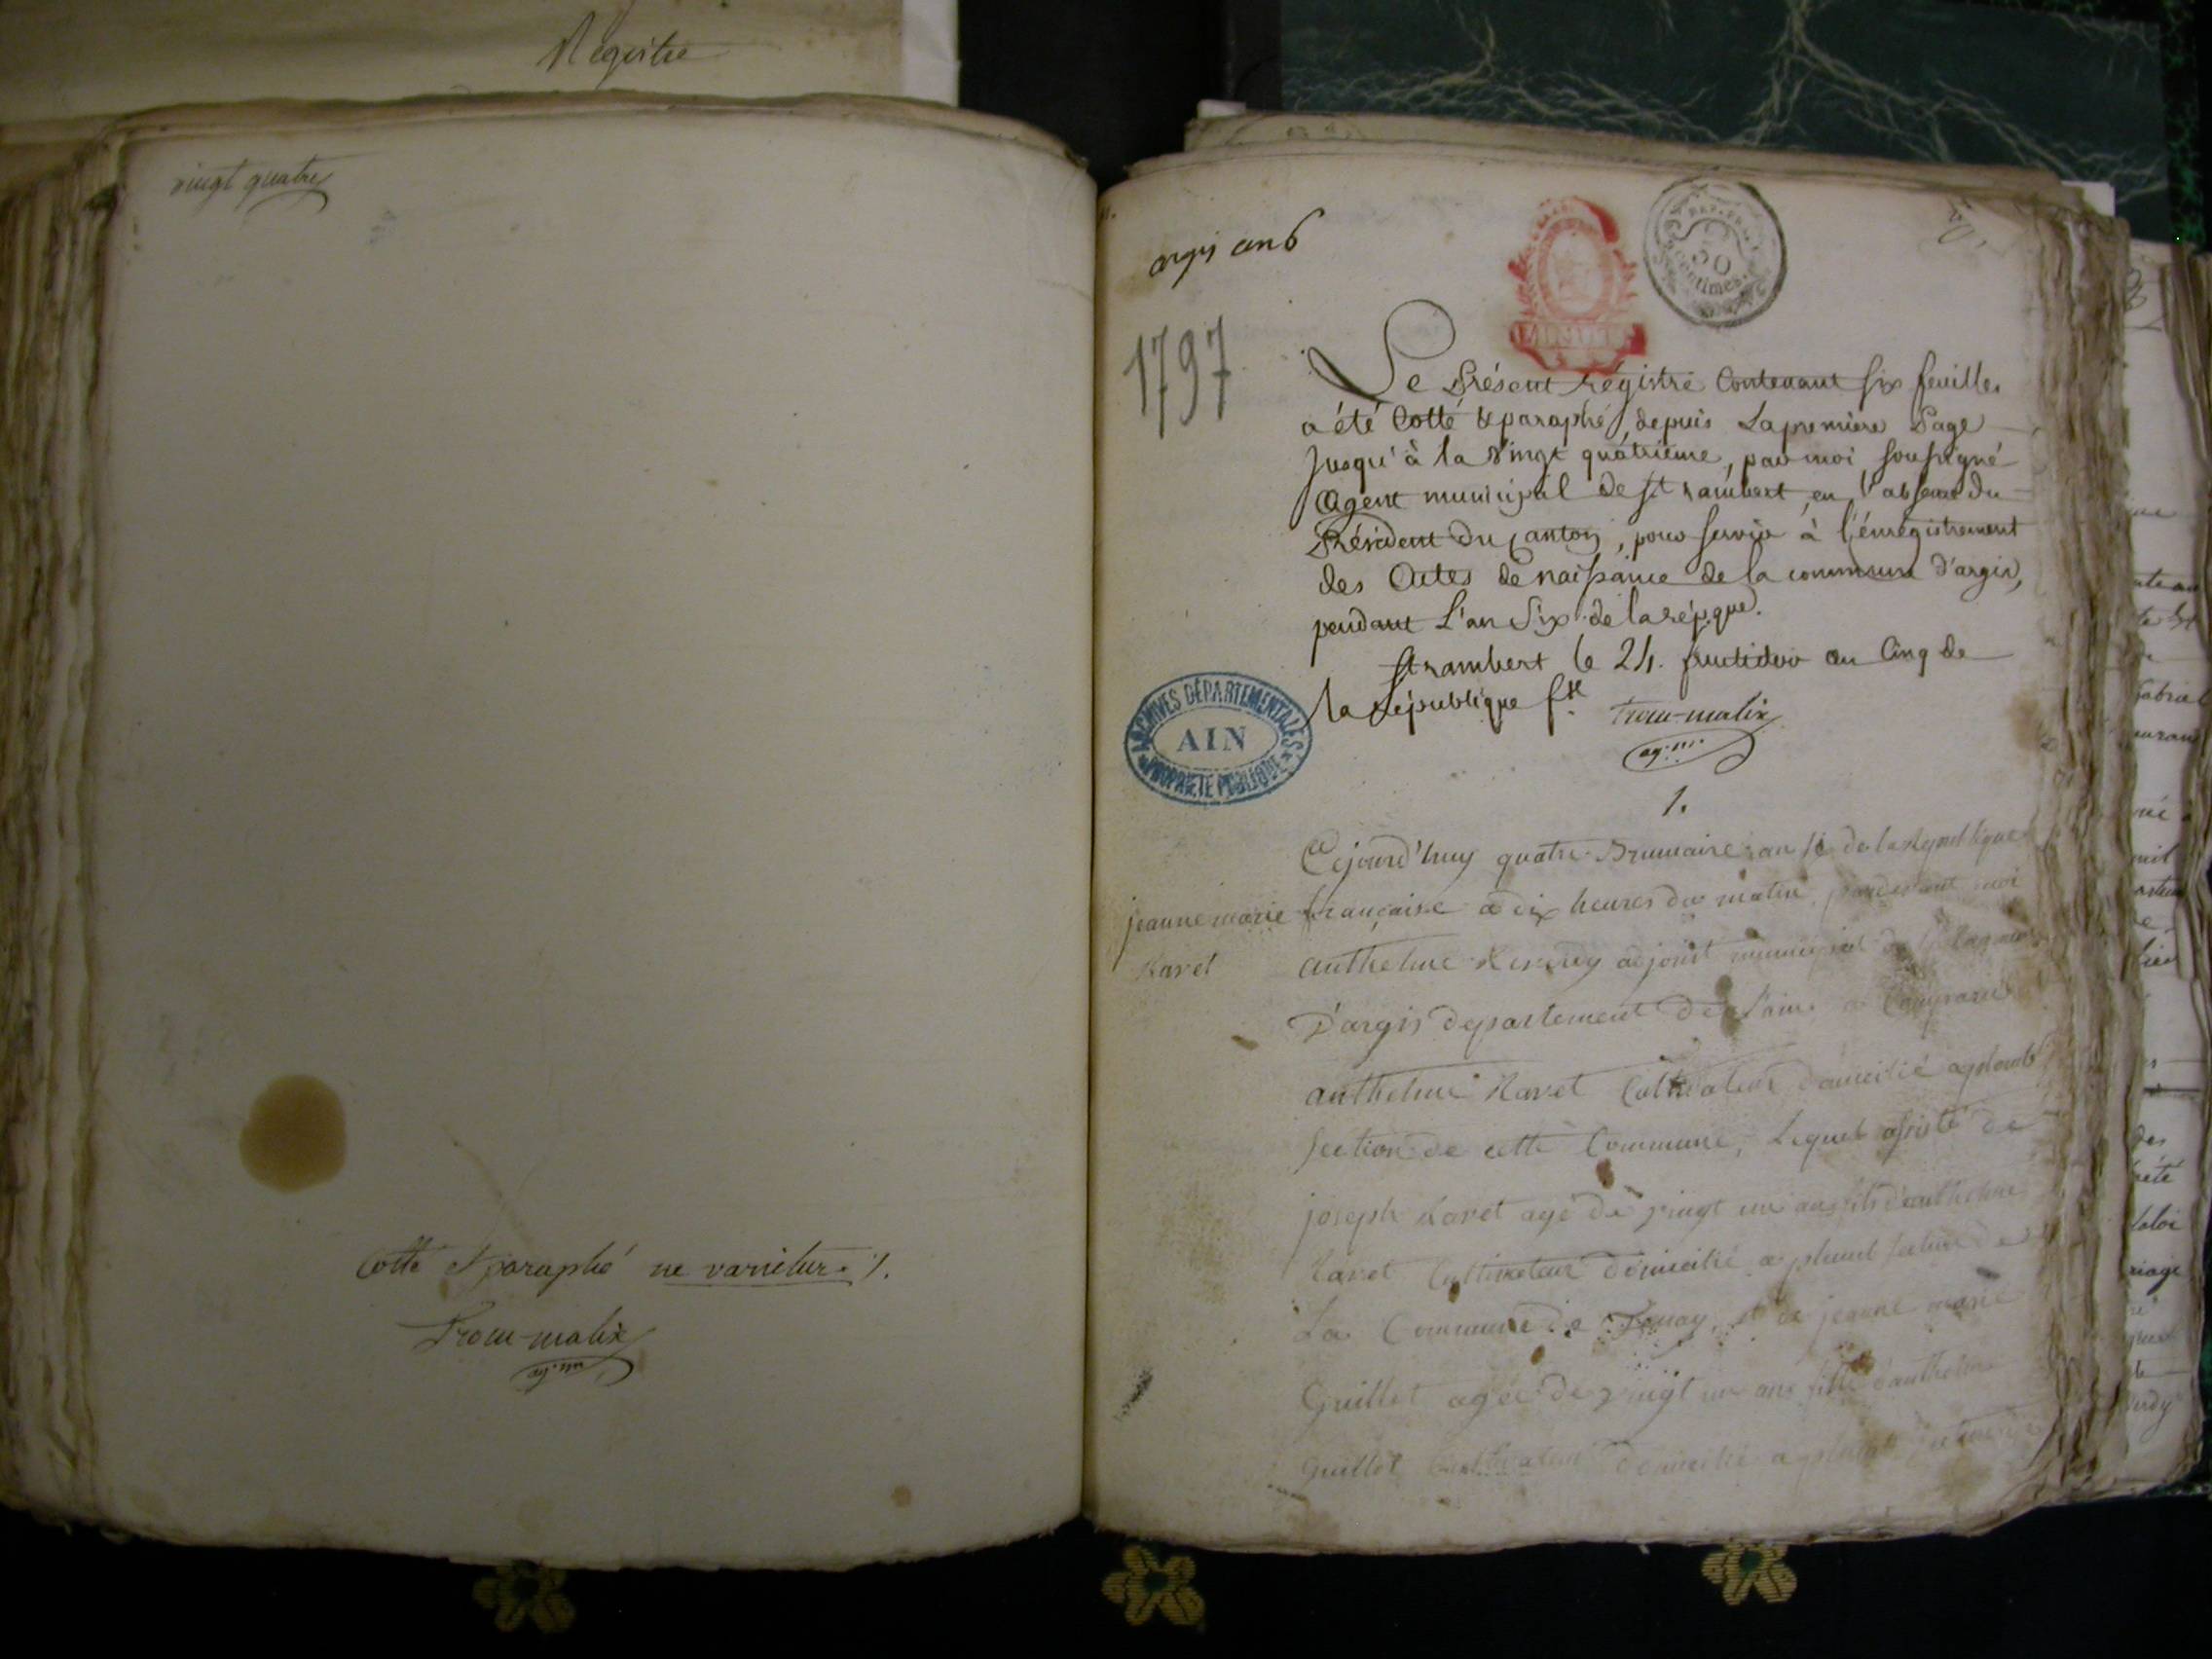 Registre
vingt quatre
Cotté et paraphé ne varietur ./.
Trocu-malix
ag. m.
argis an 6
1797
REP. FRA.
50
centimes
Le Présent régistre Contenant six feuilles
a été Cotté & paraphé, depuis La premiere Page
Jusqu'à la Vingt quatrième, par moi soussigné
Agent municipal de St rambert, en l'absence du
Président du Canton, pour servir à l'énrégistrement
des Actes de naissance de la commune d'argis,
pendant L'an Six de la rép.que.
St rambert le 24. fructidor an Cinq de
la République f.se
ag. m.
ARCHIVES DÉPARTEMENTALES
AIN
PROPRIÉTÉ PUBLIQUE
1.
jeanne marie
Ravet
Cejourd'huy quatre Brumaire an 6 de la République
française a dix heures du matin, pardevant moi
anthelme adjoint municipal de la
D'argis departement de l'ain a Comparu
anthelme Ravet Cultivateur domicilié a plomb
section de cette Commune, Lequel assisté de
joseph Ravet agé de vingt un ans fils d'anthelme
Ravet Cultivateur domicilié a section de
La Commune de Tenay, et de jeanne marie
Guillot agée de vingt un ans fille d'anthelme
Guillot Cultivateur domicilié a section de